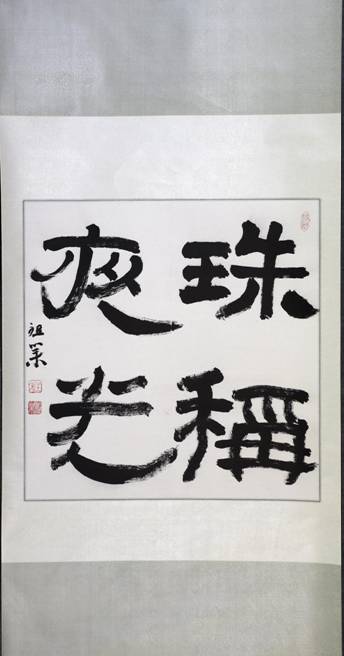 珠稱
夜光
祖業